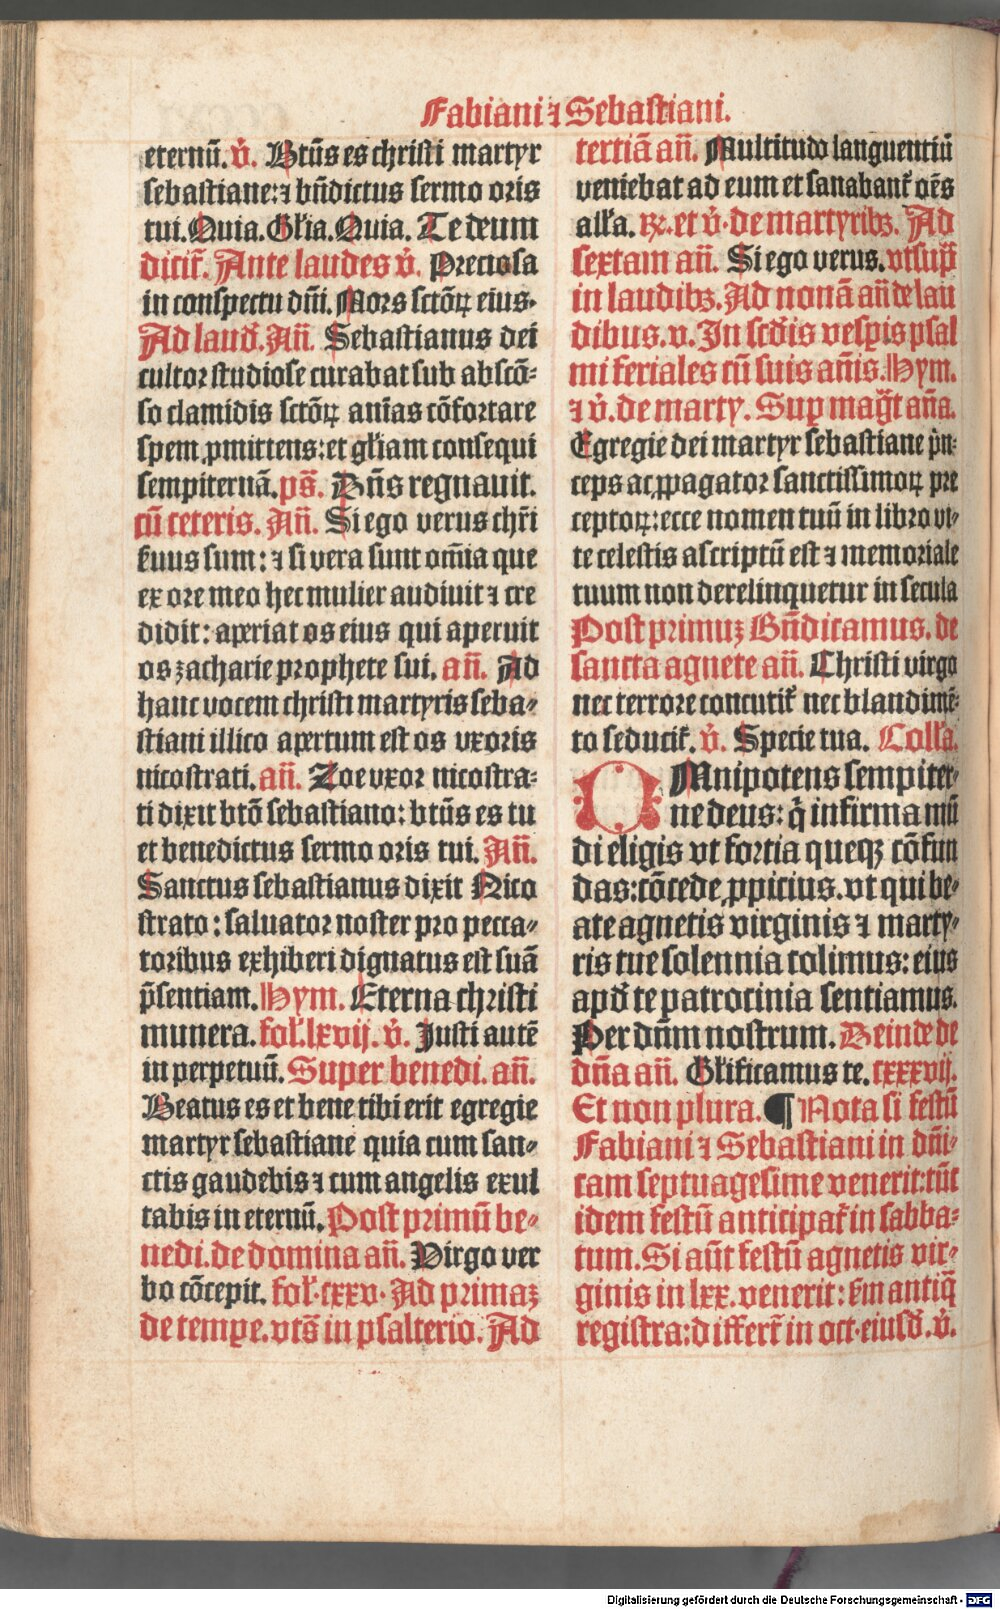 Fabiani ⁊ Sebastiani.
eternũ. v̉. Btũs es christi martyr
sebastiane: ⁊ bñdictus sermo oris
tui. Quia. Gl̉ia. Quia. Te deum
dicit̉. Ante laudes v̉. Preciosa
in conspectu dñi. Mors sctõꝝ eius.
Ad laud̉. Añ. Sebastianus dei
cultor studiose curabat sub abscõ⸗
so clamidis sctõꝝ anĩas cõfortare
spem ꝓmittens: et gl̉iam consequi
sempiternã. ps̃. Dñs regnauit.
cũ ceteris. Añ. Si ego verus chr̃i
s̉uus sum: ⁊ si vera sunt om̃ia que
ex ore meo hec mulier audiuit ⁊ cre
didit: aperiat os eius qui aperuit
os zacharie prophete sui. añ. Ad
hanc vocem christi martyris seba⸗
stiani illico apertum est os vxoris
nicostrati. añ. Zoe vxor nicostra⸗
ti dixit btõ sebastiano: btũs es tu
et benedictus sermo oris tui. Añ.
Sanctus sebastianus dixit Nico
strato: saluator noster pro pecca⸗
toribus exhiberi dignatus est suã
p̃sentiam. Hym. Eterna christi
munera. fol̉. lxvij. v̉. Justi autẽ
in perpetuũ. Super benedi. añ.
Beatus es et bene tibi erit egregie
martyr sebastiane quia cum san⸗
ctis gaudebis ⁊ cum angelis exul
tabis in eternũ. Post primũ be⸗
nedi. de domina añ. Virgo ver
bo cõcepit. fol̉. cxxv. Ad primaꝫ
de tempe. vts̃ in psalterio. Ad
tertiã añ. Multitudo languentiũ
veniebat ad eum et sanabant̉ oẽs
all̉a. ꝶ. et v̉. de martyribꝫ. Ad
sextam añ. Si ego verus. vtsup̃
in laudibꝫ. Ad nonã añ de lau
dibus. v. In scd̉is vesp̱is psal
mi feriales cũ suis añis. Hym.
⁊ v̉. de marty. Suꝑ mag̃t aña.
Egregie dei martyr sebastiane p̉n⸗
ceps ac ꝓpagator sanctissimoꝝ pre
ceptoꝝ: ecce nomen tuũ in libro vi⸗
te celestis ascriptũ est ⁊ memoriale
tuum non derelinquetur in secula
Post primuꝫ Bñdicamus. de
sancta agnete añ. Christi virgo
nec terrore concutit̉ nec blandimẽ⸗
to seducit̉. v̉. Specie tua. Coll̉a.
OMnipotens sempiter⸗
ne deus: q̉ infirma mũ
di eligis vt fortia queqꝫ cõfun
das: cõcede ꝓpicius. vt qui be⸗
ate agnetis virginis ⁊ marty⸗
ris tue solennia colimus: eius
apd̉ te patrocinia sentiamus.
Per dñm nostrum. Deinde de
dña añ. Gl̉ificamus te. cxxxvij.
Et non plura. ¶ Nota si festũ
Fabiani ⁊ Sebastiani in dñi⸗
cam septuagesime venerit: tũc
idem festũ anticipat̉ in sabba⸗
tum. Si aũt festũ agnetis vir⸗
ginis in lxx. venerit: s̉m antiq̃
registra: differt̉ in oct. eiusd̉. v̉.
Digitalisierung gefördert durch die Deutsche Forschungsgemeinschaft - DFG